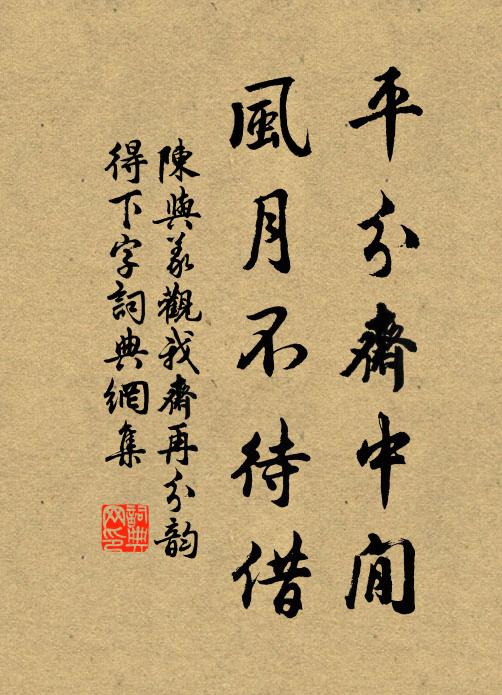 平分齋中閒
風月不待借
陳與義觀我齋再分韵
得下字詞典網集
詞典网印